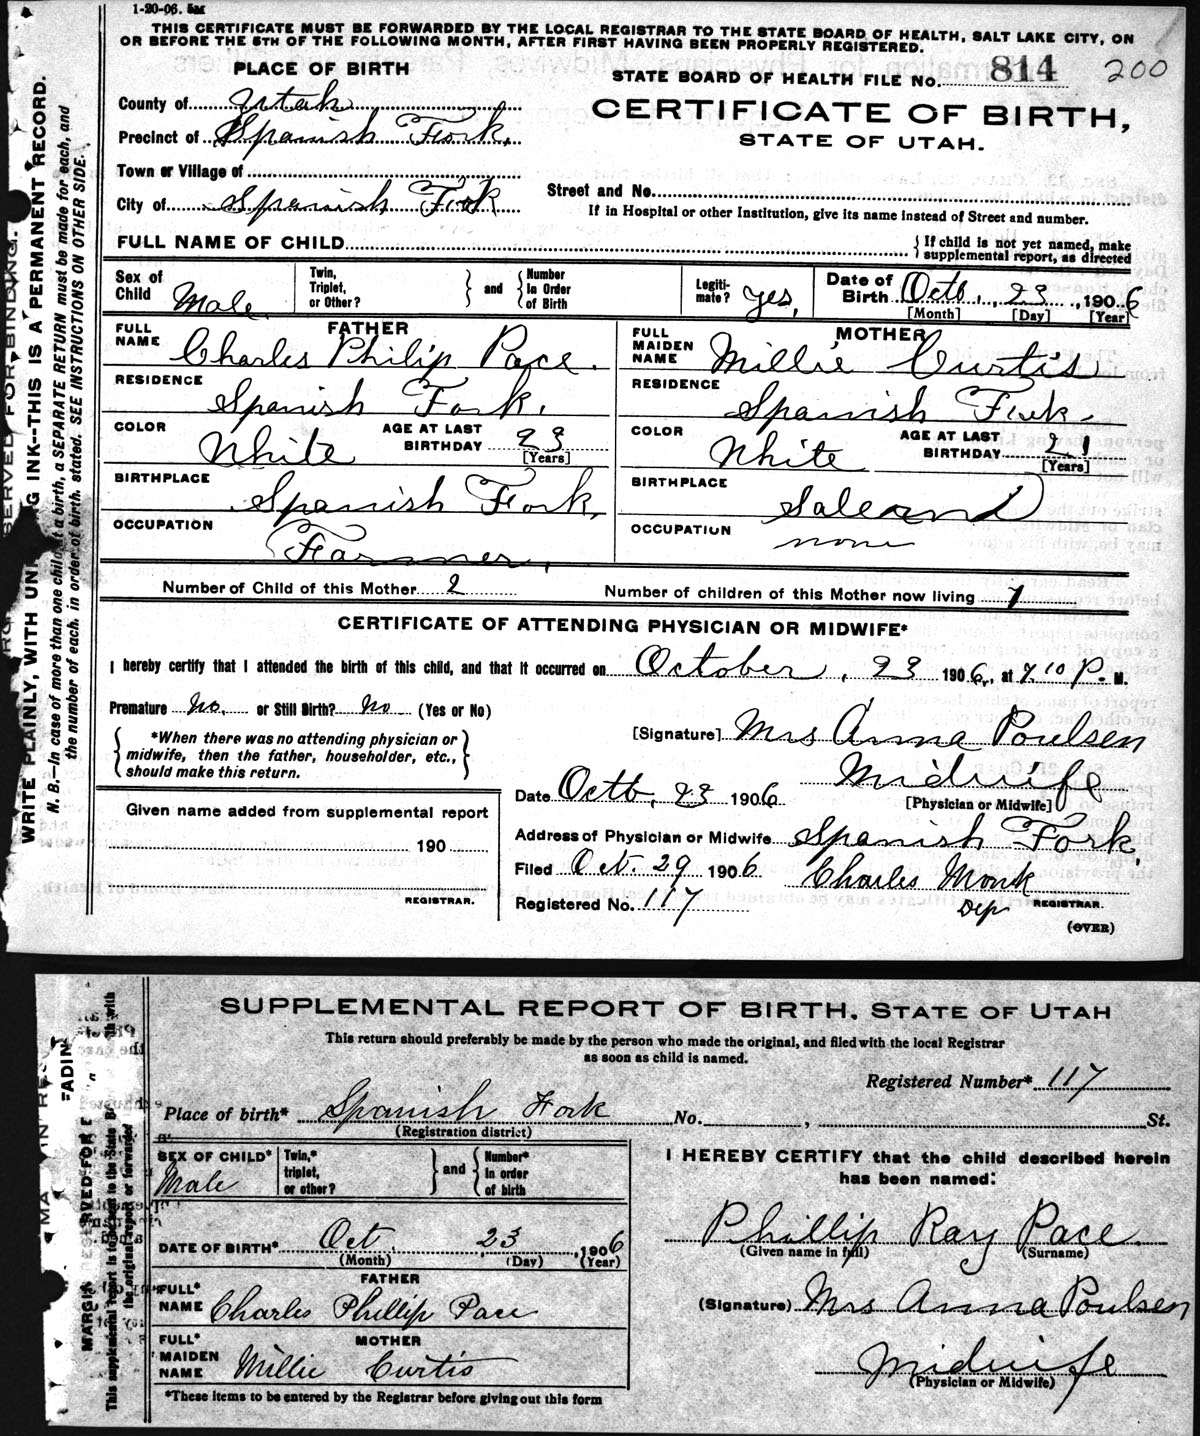 1-20-06. 5M
THIS CERTIFICATE MUST BE FORWARDED BY THE LOCAL REGISTRAR TO THE STATE BOARD OF HEALTH, SALT LAKE CITY, ON
OR BEFORE THE 5TH OF THE FOLLOWING MONTH, AFTER FIRST HAVING BEEN PROPERLY REGISTERED.
PLACE OF BIRTH
STATE BOARD OF HEALTH FILE No. 814 200
County of Utah
CERTIFICATE OF BIRTH,
Precinct of Spanish Fork.
STATE OF UTAH.
Town or Village of
Street and No.
City of Spanish Fork
If in Hospital or other Institution, give its name instead of Street and number.
FULL NAME OF CHILD { If child is not yet named, make
supplemental report, as directed
Sex of Child Male.
Twin, Triplet, or Other? } and { Number in Order of Birth
Legiti-mate? yes,
Date of Birth Octb., 23, 1906
[Month] [Day] [Year]
FATHER
FULL NAME Charles Philip Pace.
MOTHER
FULL MAIDEN NAME Millie Curtis
RESIDENCE Spanish Fork.
RESIDENCE Spanish Fork.
COLOR White AGE AT LAST BIRTHDAY 23 [Years]
COLOR White AGE AT LAST BIRTHDAY 21 [Years]
BIRTHPLACE Spanish Fork,
BIRTHPLACE
OCCUPATION Farmer,
OCCUPATION none
Number of Child of this Mother 2
Number of children of this Mother now living 1
CERTIFICATE OF ATTENDING PHYSICIAN OR MIDWIFE*
I hereby certify that I attended the birth of this child, and that it occurred on October, 23 1906, at 7.10 P. M.
Premature No. or Still Birth? No (Yes or No)
{ *When there was no attending physician or
midwife, then the father, householder, etc.,
should make this return. }
[Signature] Mrs Anna Poulsen
Midwife
[Physician or Midwife]
Date Octb, 23 1906
Given name added from supplemental report
190
REGISTRAR.
Address of Physician or Midwife Spanish Fork,
Filed Oct. 29 1906 Charles Monk
Registered No. 117 Dep REGISTRAR.
(OVER)
WRITE PLAINLY, WITH INK--THIS IS A PERMANENT RECORD.
N. B.--In case of more than one child at a birth, a SEPARATE RETURN must be made for each, and
the number of each, in order of birth, stated. SEE INSTRUCTIONS ON OTHER SIDE.
SUPPLEMENTAL REPORT OF BIRTH, STATE OF UTAH
This return should preferably be made by the person who made the original, and filed with the local Registrar
as soon as child is named.
Registered Number* 117
Place of birth* Spanish Fork No. , St.
(Registration district)
SEX OF CHILD* Male
Twin,* triplet, or other? } and { Number* in order of birth
I HEREBY CERTIFY that the child described herein
has been named:
Phillip Ray Pace
(Given name in full) (Surname)
DATE OF BIRTH* Oct. 23, 1906
(Month) (Day) (Year)
FATHER
FULL* NAME Charles Phillip Pace
(Signature) Mrs Anna Poulsen
MOTHER
FULL* MAIDEN NAME Millie Curtis
Midwife
(Physician or Midwife)
*These items to be entered by the Registrar before giving out this form